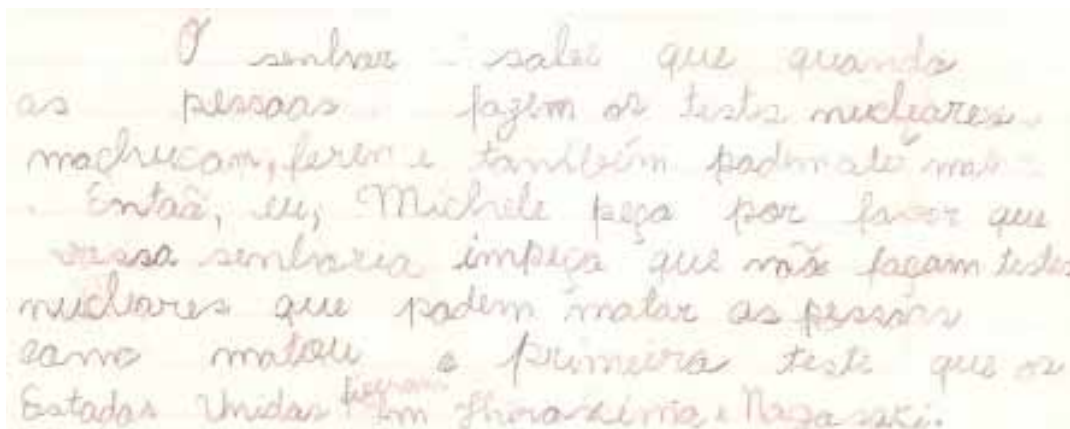 O senhor sabe que quando
as pessoas fazem os tests nucleares
machucam, ferem e também podem até
Então, eu, Michele peço por favor que
vossa senhoria impeça que não façam testes
nucleares que podem matar as pessoas
como matou o primeiro teste que os
Estados Unidos fizeram em Hiroxima e Nagasaki.